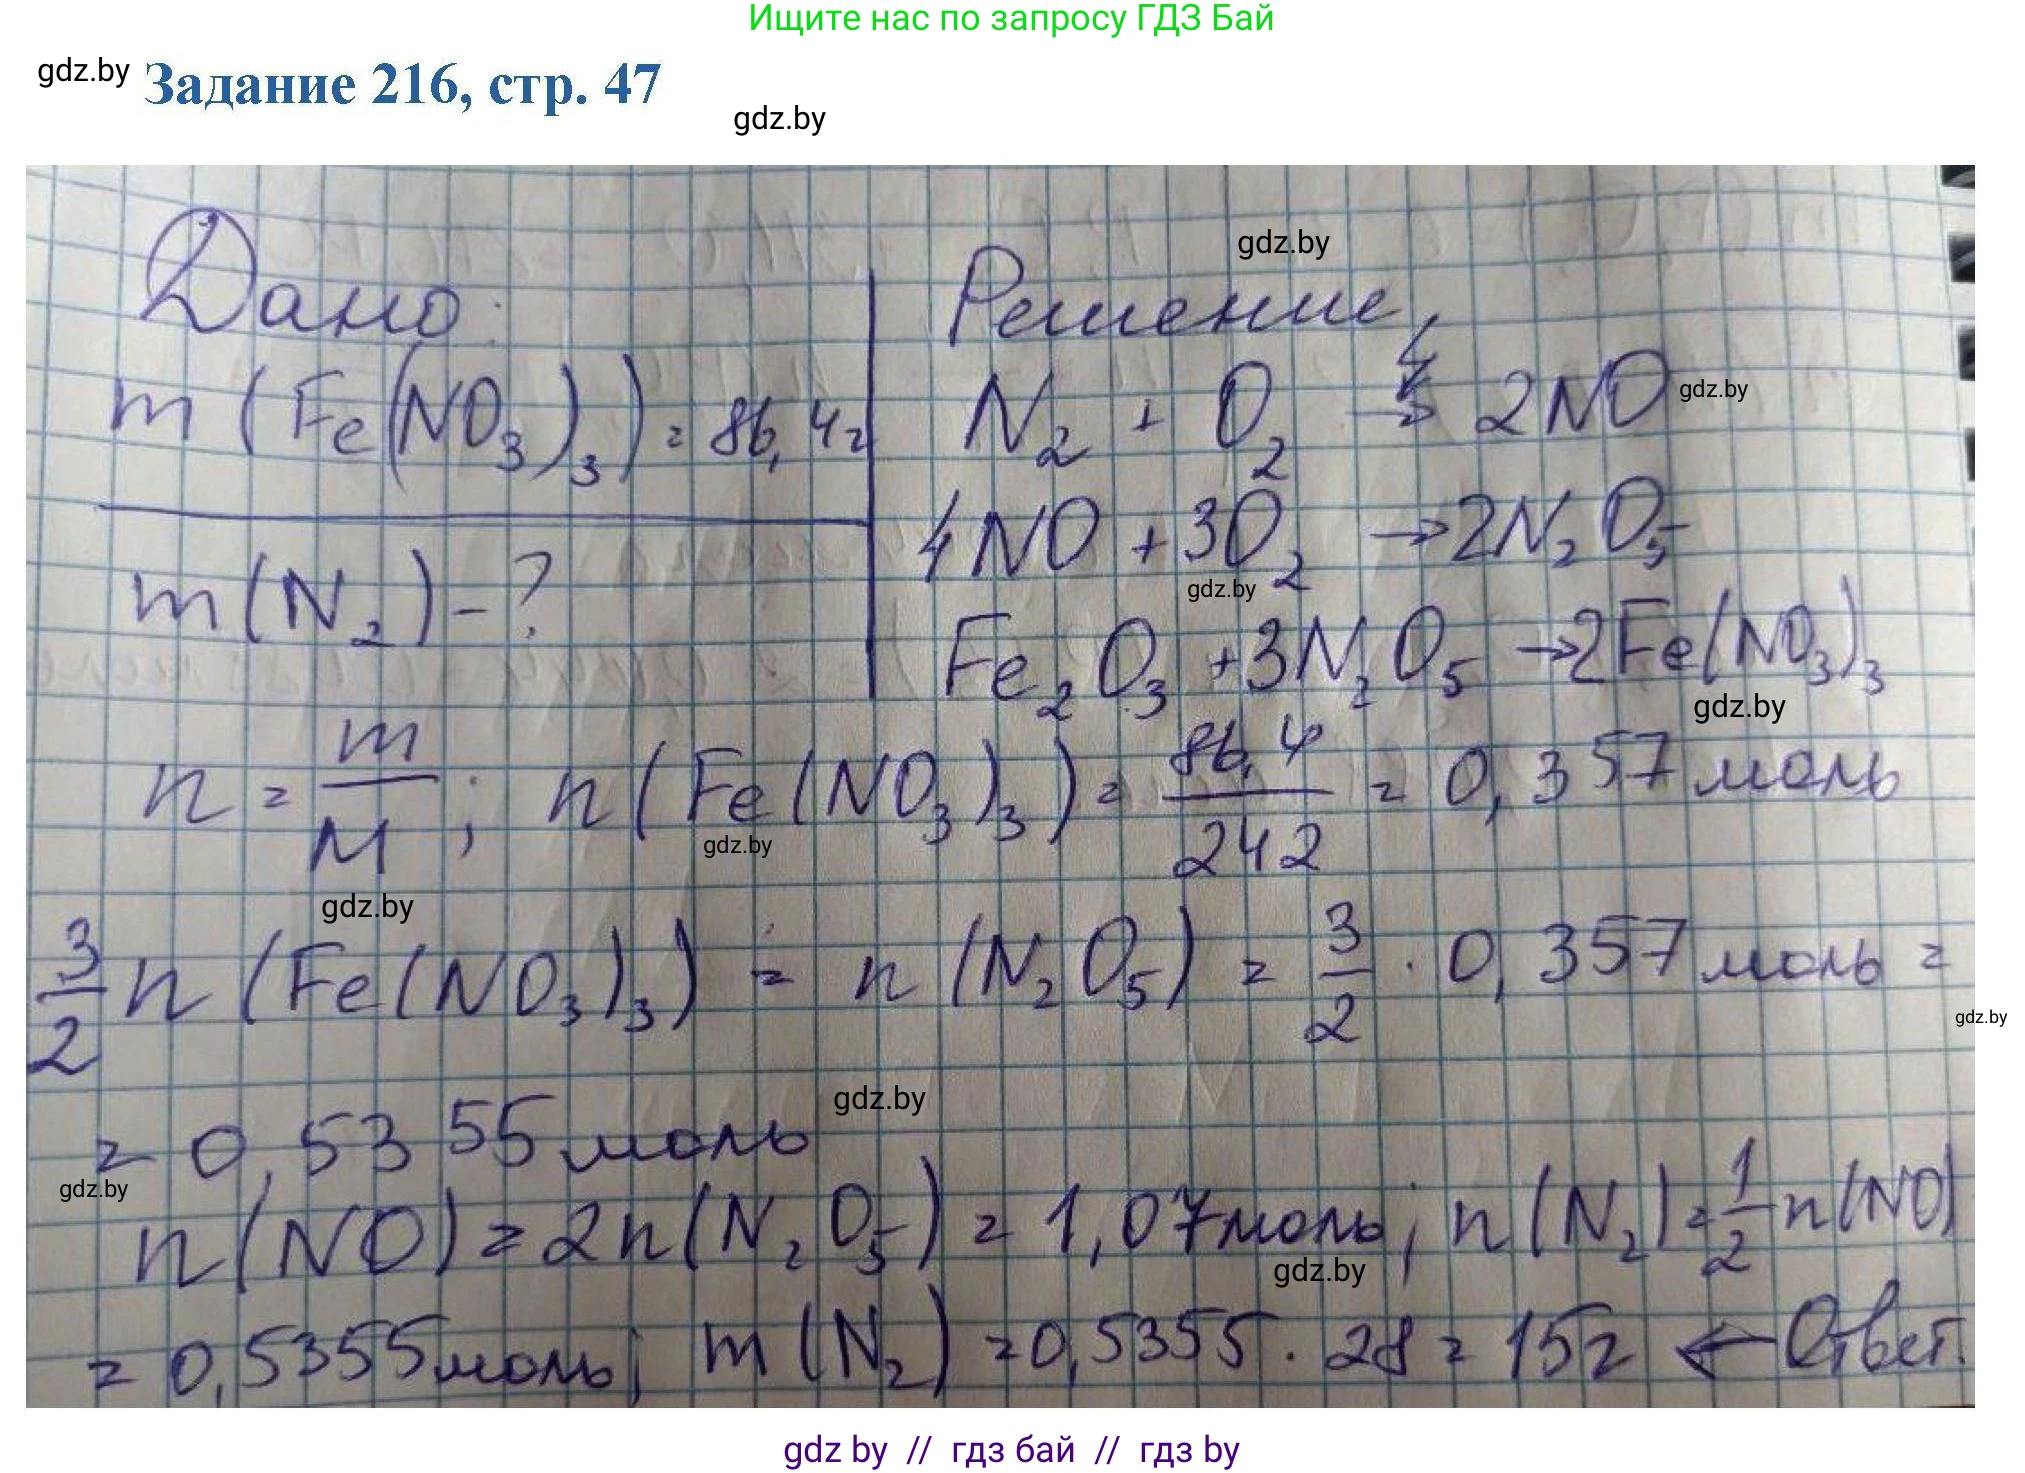 Ищите нас по запросу ГДЗ Бай
gdz.by Задание 216, стр. 47
gdz.by
gdz.by
Дано: Решение
m (Fe(NO₃)₃) = 86,4г N₂ + O₂ → 2NO gdz.by
4NO + 3O₂ → 2N₂O₅
gdz.by
m(N₂) - ? Fe₂O₃ + 3N₂O₅ → 2Fe(NO₃)₃
gdz.by
n = m/M ; n(Fe(NO₃)₃) = 86,4/242 = 0,357 моль
gdz.by
gdz.by
3/2 n (Fe(NO₃)₃) = n (N₂O₅) = 3/2 · 0,357 моль =
gdz.by
gdz.by
= 0,5355 моль
gdz.by
n(NO) = 2n(N₂O₅) = 1,07моль; n(N₂) = 1/2 n(NO)
gdz.by
= 0,5355моль; m(N₂) = 0,5355 · 28 = 15г ← Ответ.
gdz by // гдз бай // гдз by